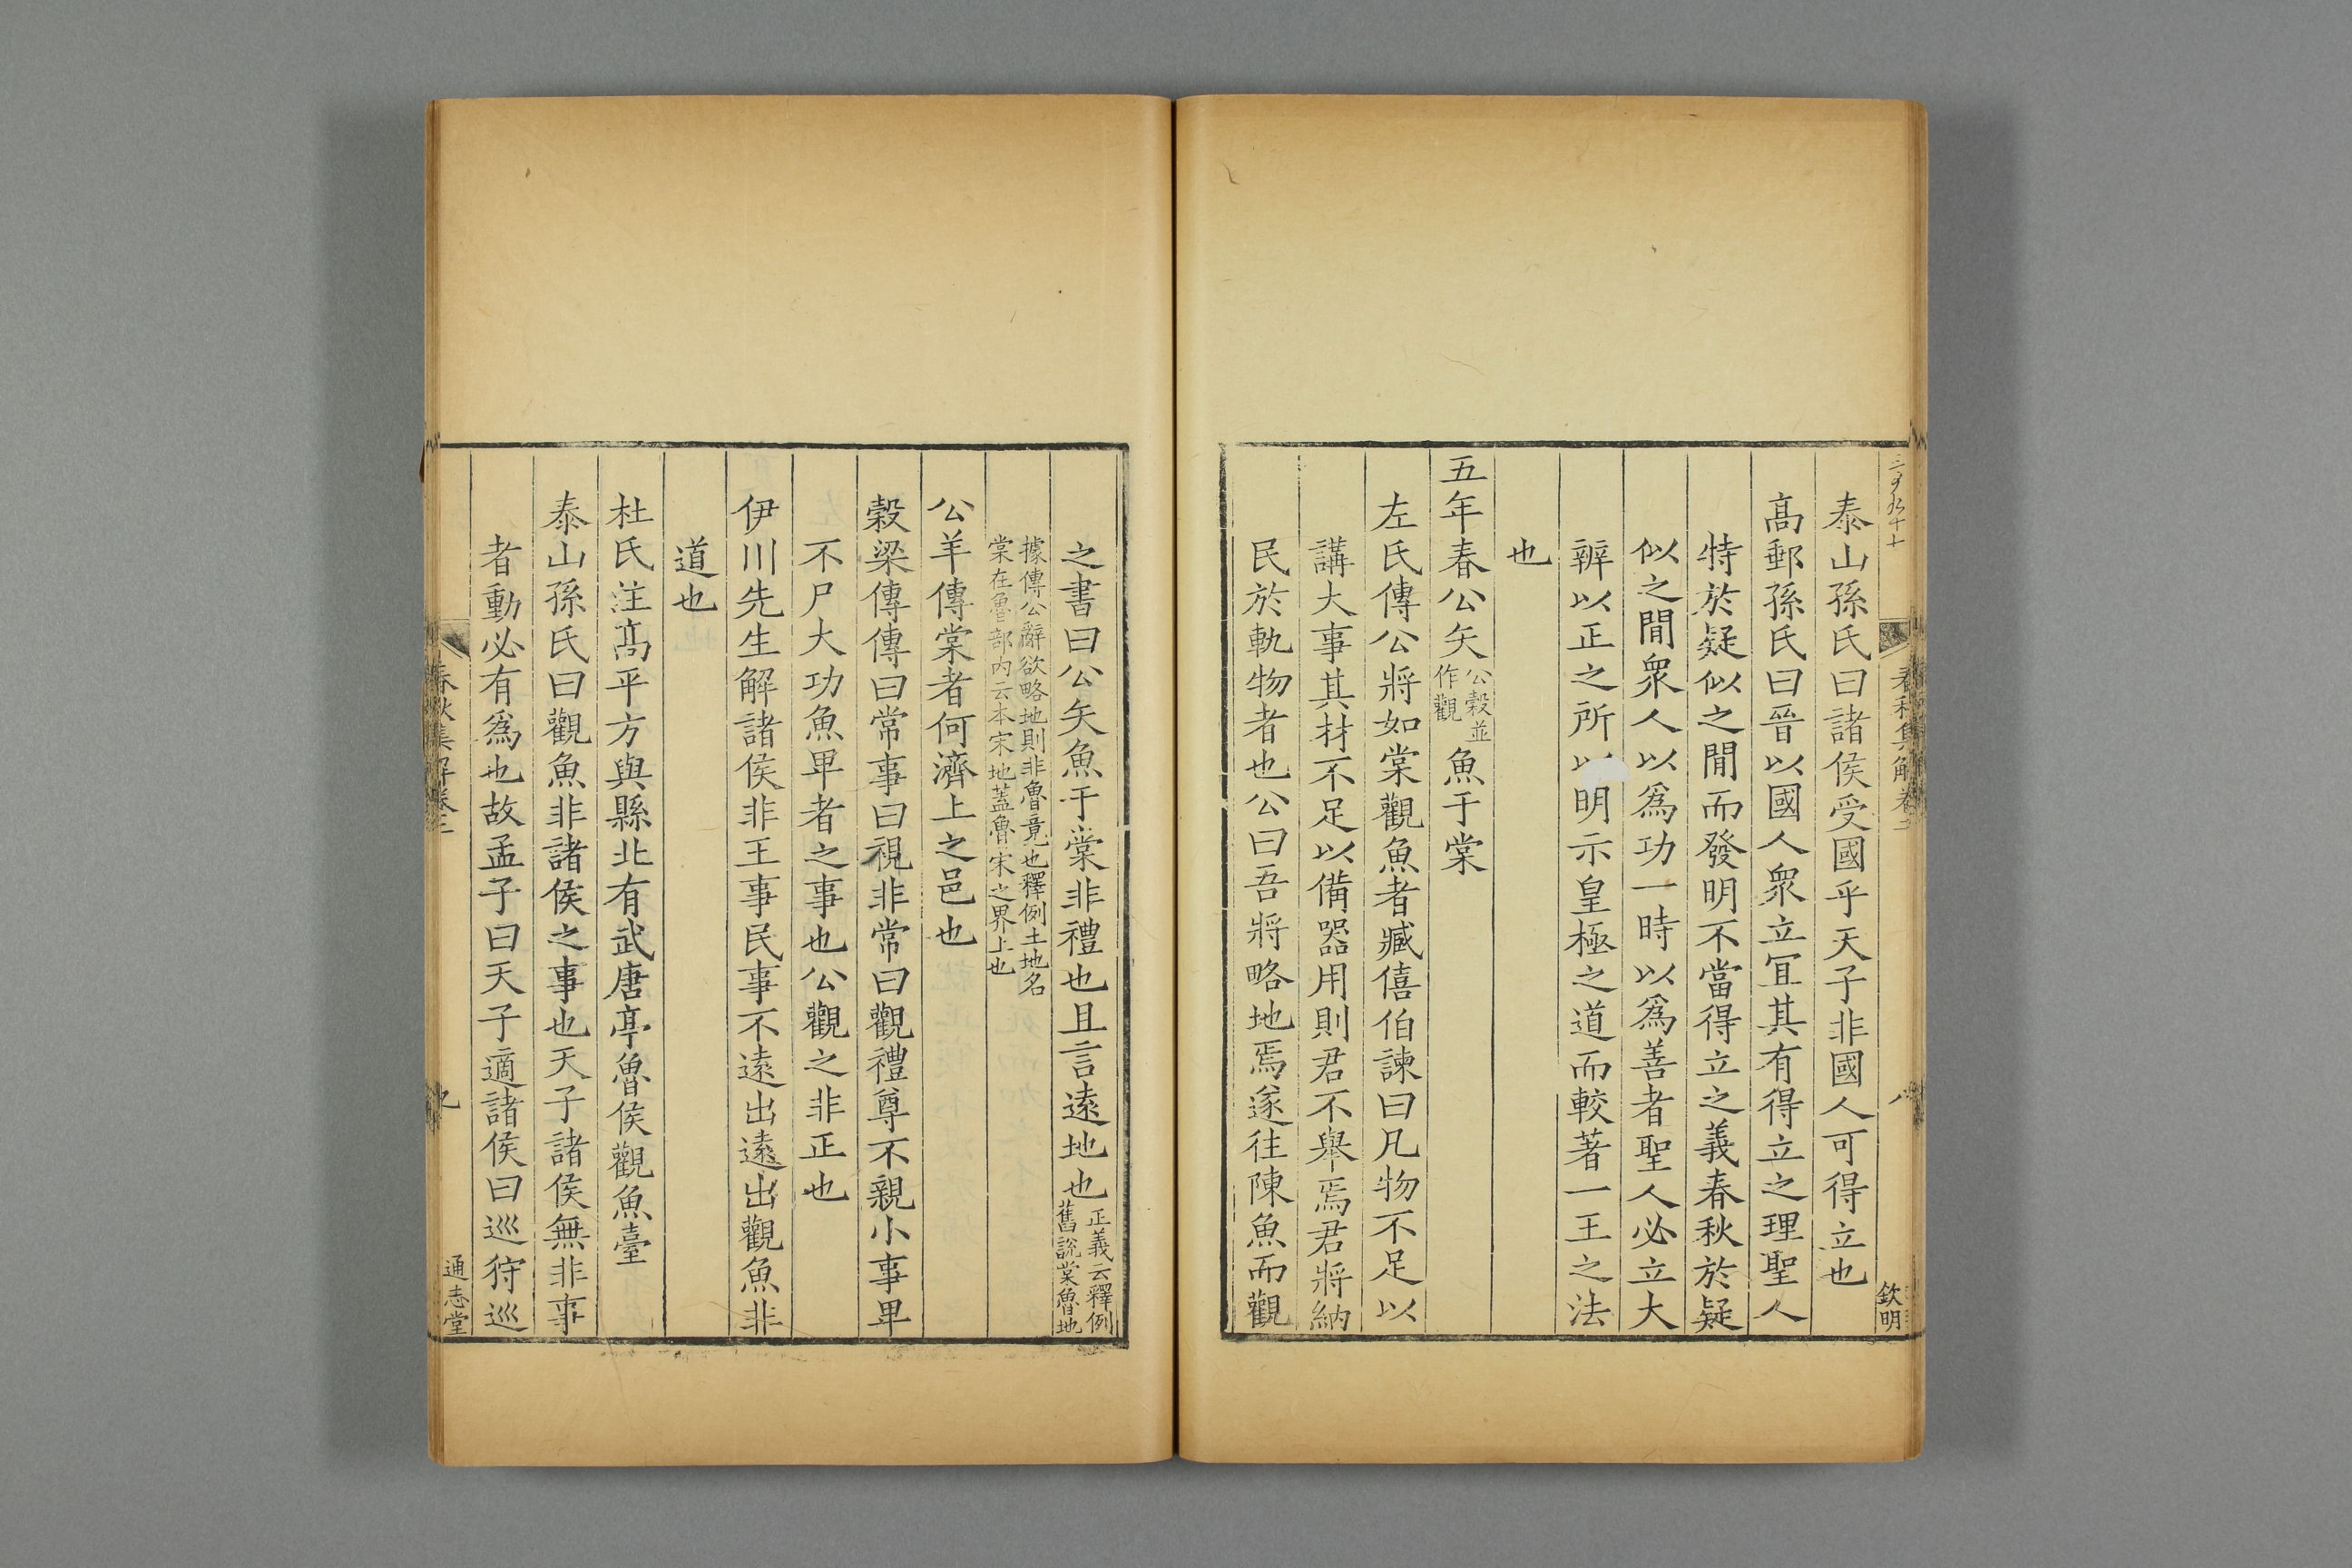 春秋集解卷二
八
欽明
泰山孫氏曰諸侯受國乎天子非國人可得立也
髙郵孫氏曰晉以國人衆立冝其有得立之理聖人
特於疑似之閒而發明不當得立之義春秋於疑
似之閒衆人以爲功一時以爲善者聖人必立大
辨以正之所以明示皇極之道而較著一王之法
也
五年春公矢公穀並作觀魚于棠
左氏傳公將如棠觀魚者臧僖伯諫曰凡物不足以
講大事其材不足以備器用則君不舉焉君將納
民於軌物者也公曰吾將略地焉遂往陳魚而觀
之書曰公矢魚于棠非禮也且言遠地也正義云釋例舊說棠魯地
據傳公辭欲略地則非魯竟也釋例土地名棠在魯部内云本宋地蓋魯宋之界上也
公羊傳棠者何濟上之邑也
榖梁傳傳曰常事曰視非常曰觀禮尊不親小事卑
不尸大功魚卑者之事也公觀之非正也
伊川先生解諸侯非王事民事不遠出遠出觀魚非
道也
杜氏注髙平方與縣北有武唐亭魯侯觀魚臺
泰山孫氏曰觀魚非諸侯之事也天子諸侯無非事
者動必有爲也故孟子曰天子適諸侯曰巡狩巡
春秋集解卷二
九
通志堂